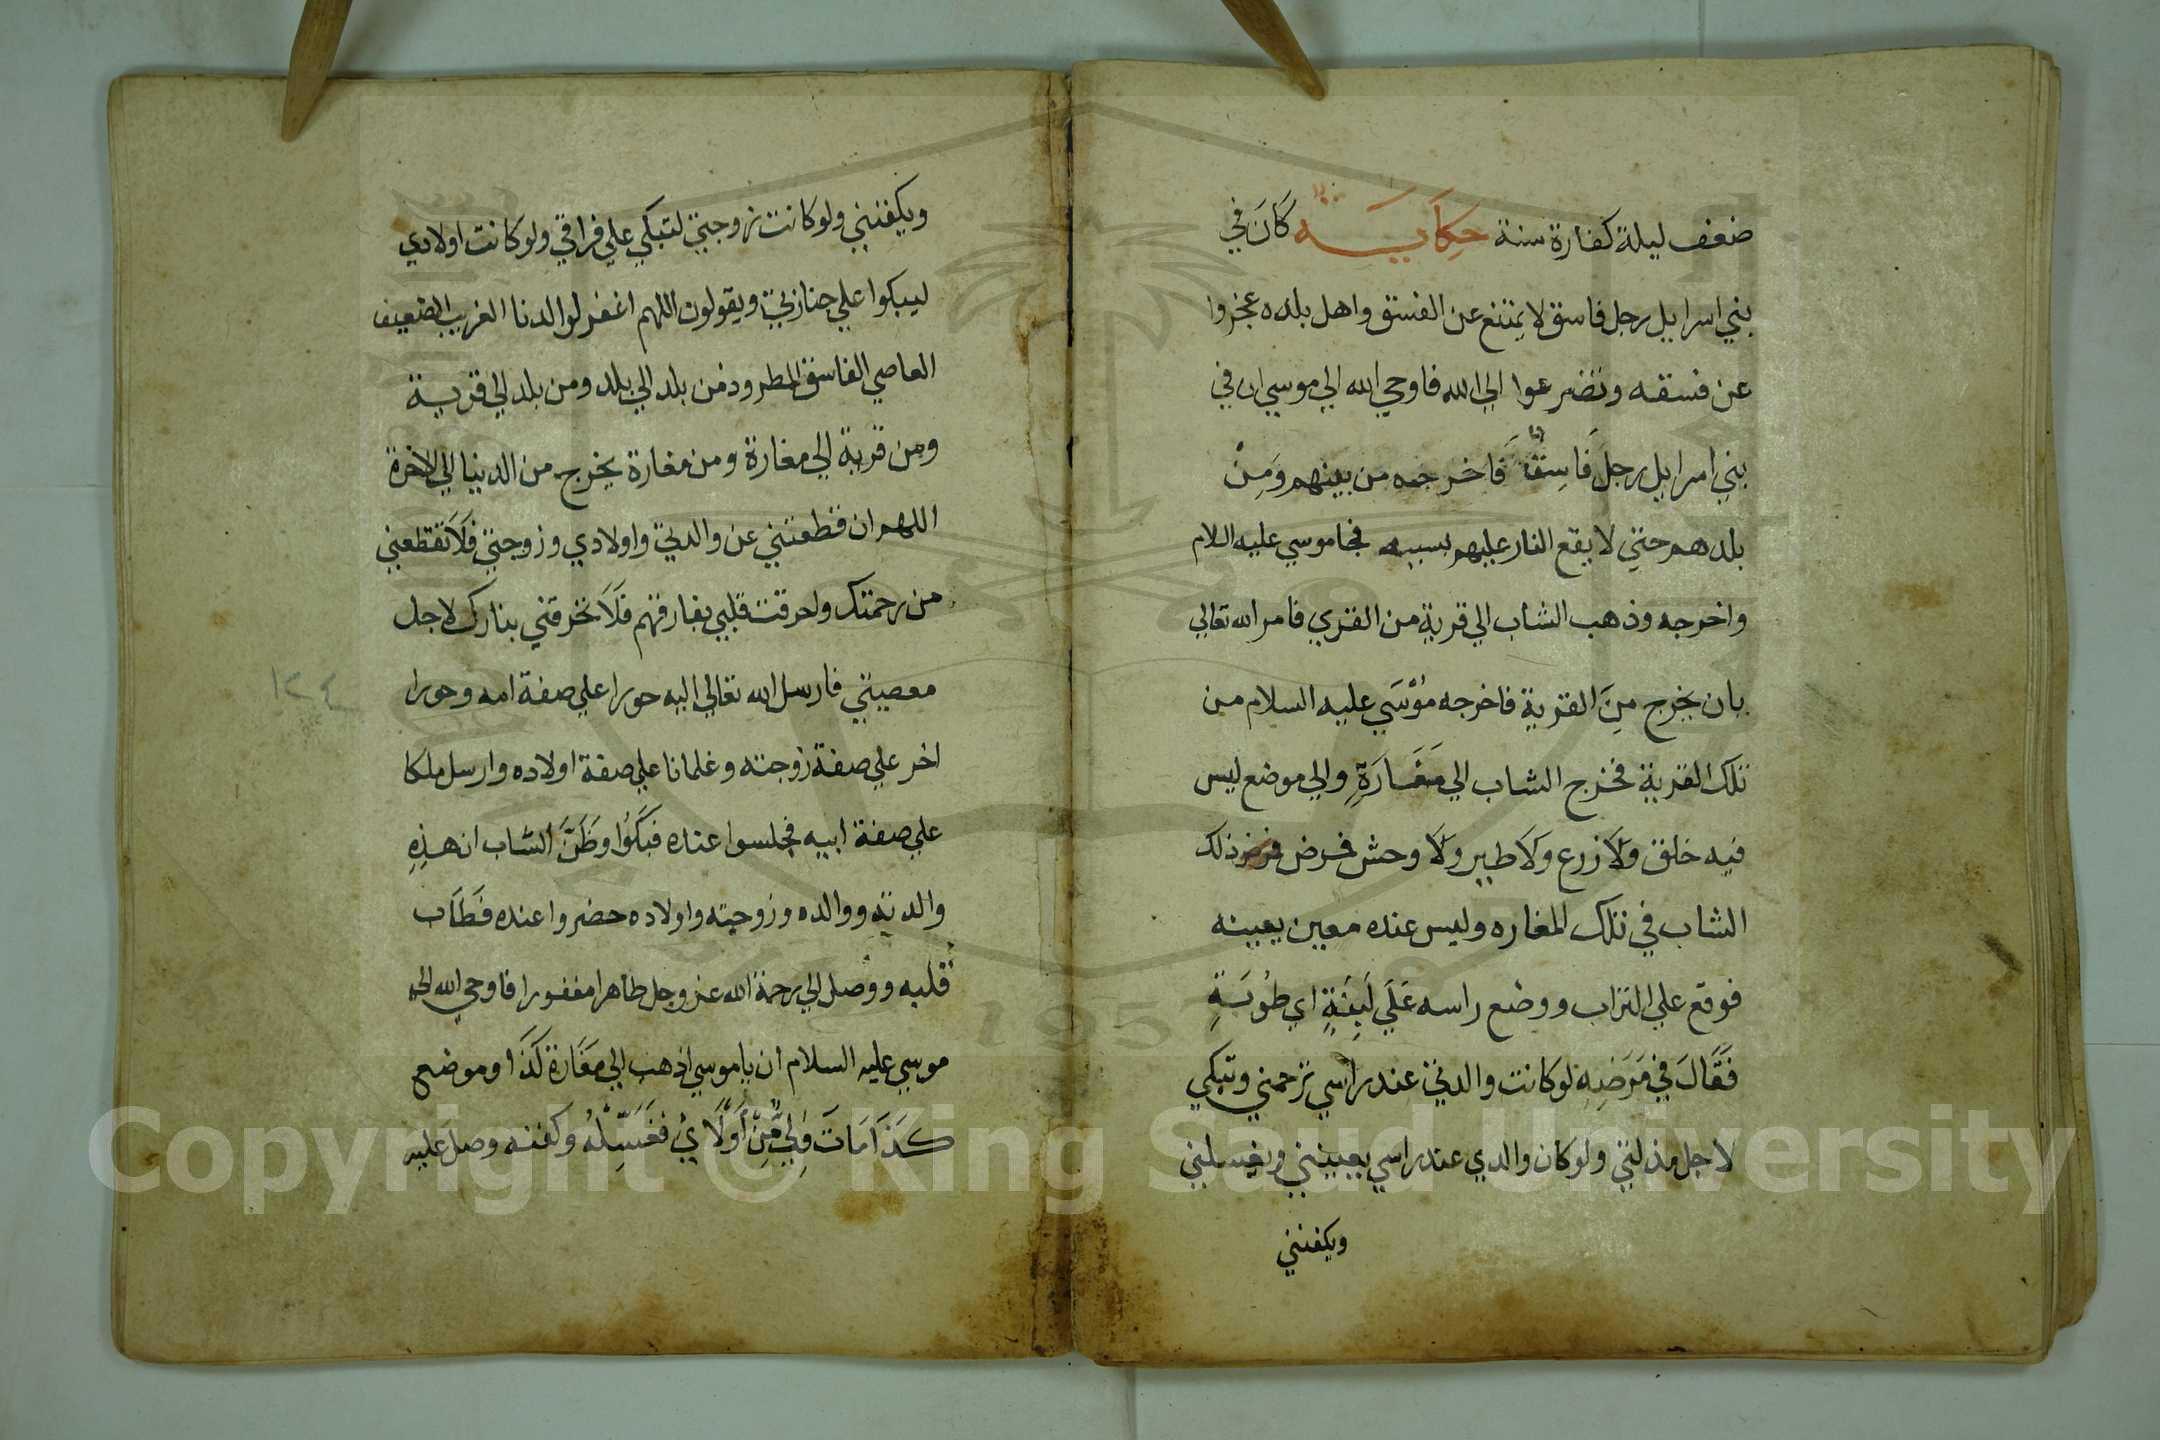 ضعف ليلة كفارة سنة حِكَايَة كَانَ في
بني اسرايل رجل فاسق لا يمتنع عن الفسق واهل بلده عجزوا
عن فسقه وتضرعوا الي الله فاوحي الله الي موسي ان في
بني اسرايل رجل فَاسِقٌ فَاخرجه من بينهم وَمِنْ
بلدهم حتي لا يقع النار عليهم بسببه فجا موسي عليه السلام
واخرجه وذهب الشاب الي قرية من القري فامر الله تعالي
بان يخرج مِنَ القرية فاخرجه مُوْسَي عليه السلام من
تلك القرية فخرج الشاب الي مَغَارَةٍ والي موضع ليس
فيه خلق وَلَا زرع وَلَا طير وَلَا وحش فمرض ذلك
الشاب في تلك المغاره وليس عنده معين يعينه
فوقع علي التراب ووضع راسه عَلَي لَبِنَةٍ اي طُوبَةٍ
فَقَالَ في مَرَضِهِ لو كانت والدتي عند راسي ترحمني وتبكي
لاجل مذلتي ولو كان والدي عند راسي يعينني ويغسلني
ويكفنني
ويكفنني ولو كانت زوجتي لتبكي علي فراقي ولو كانت اولادي
ليبكوا علي جنازتي ويقولون اللهم اغفر لوالدنا الغريب الضعيف
العاصي الفاسق المطرود من بلد الي بلد ومن بلد الي قرية
ومن قرية الي مغارة ومن مغارة يخرج من الدنيا الي الاخرة
اللهم ان قطعتني عن والدتي واولادي وزوجتي فَلَا تقطعني
من رحمتك واحرقت قلبي بفارقتهم فَلَا تحرقني بنارك لاجل
معصيتي فارسل الله تعالي اليه حورا علي صفة امه وحورا
اخر علي صفة زوجته وغلمانا علي صفة اولاده وارسل ملكا
علي صفة ابيه فجلسوا عنده فبَكَوُا وَظَنَّ الشاب ان هذِهِ
والدته ووالده وزوجته واولاده حضروا عنده فَطَابَ
قلبه ووصل الي رحمة الله عز وجل طاهرا مغفورا فاوحي الله الي
موسي عليه السلام ان يا موسي اذهب الي مَغَارة كَذَا وموضع
كَذَا مَاتَ وَلِيٌّ مِّنْ أَوْلَايْ فَغَسِّلْهُ وكفنه وصل عليه
١٢٤
Copyright © King Saud University
1957